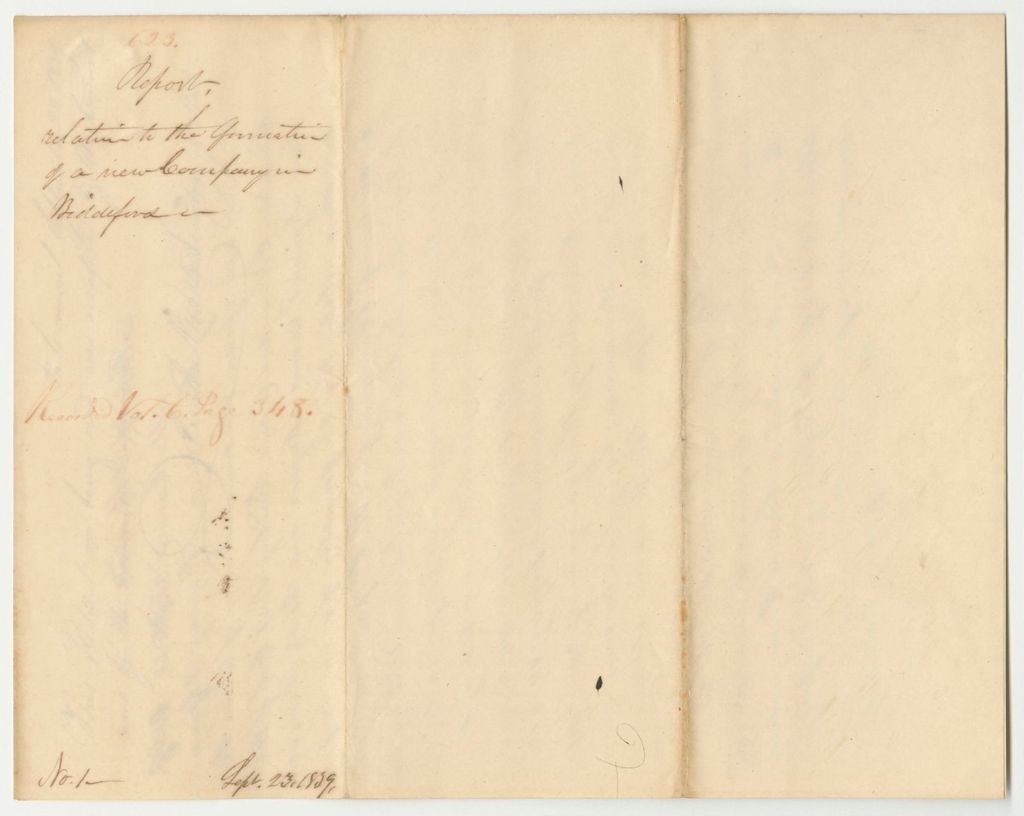 123.
Report,
relative to the formation
of a new Company in
Biddeford
Recorded Vol. 6. Page 348.
No. 1
Sept. 23, 1839,